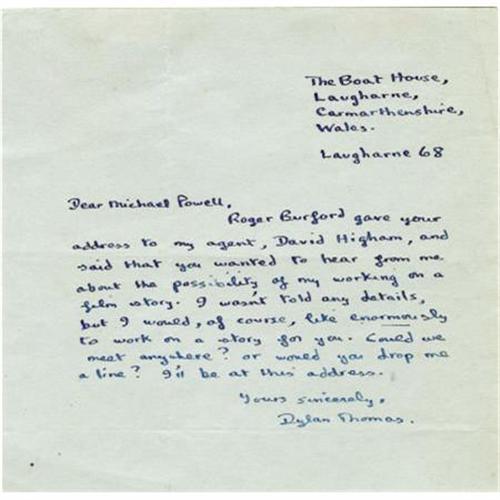 The Boat House,
Laugharne,
Carmarthenshire,
Wales.
Laugharne 68
Dear Michael Powell,
Roger Burford gave your
address to my agent, David Higham, and
said that you wanted to hear from me
about the possibility of my working on a
film story. I wasn't told any details,
but I would, of course, like enormously
to work on a story for you. Could we
meet anywhere? or would you drop me
a line? I'll be at this address.
Yours sincerely,
Dylan Thomas.